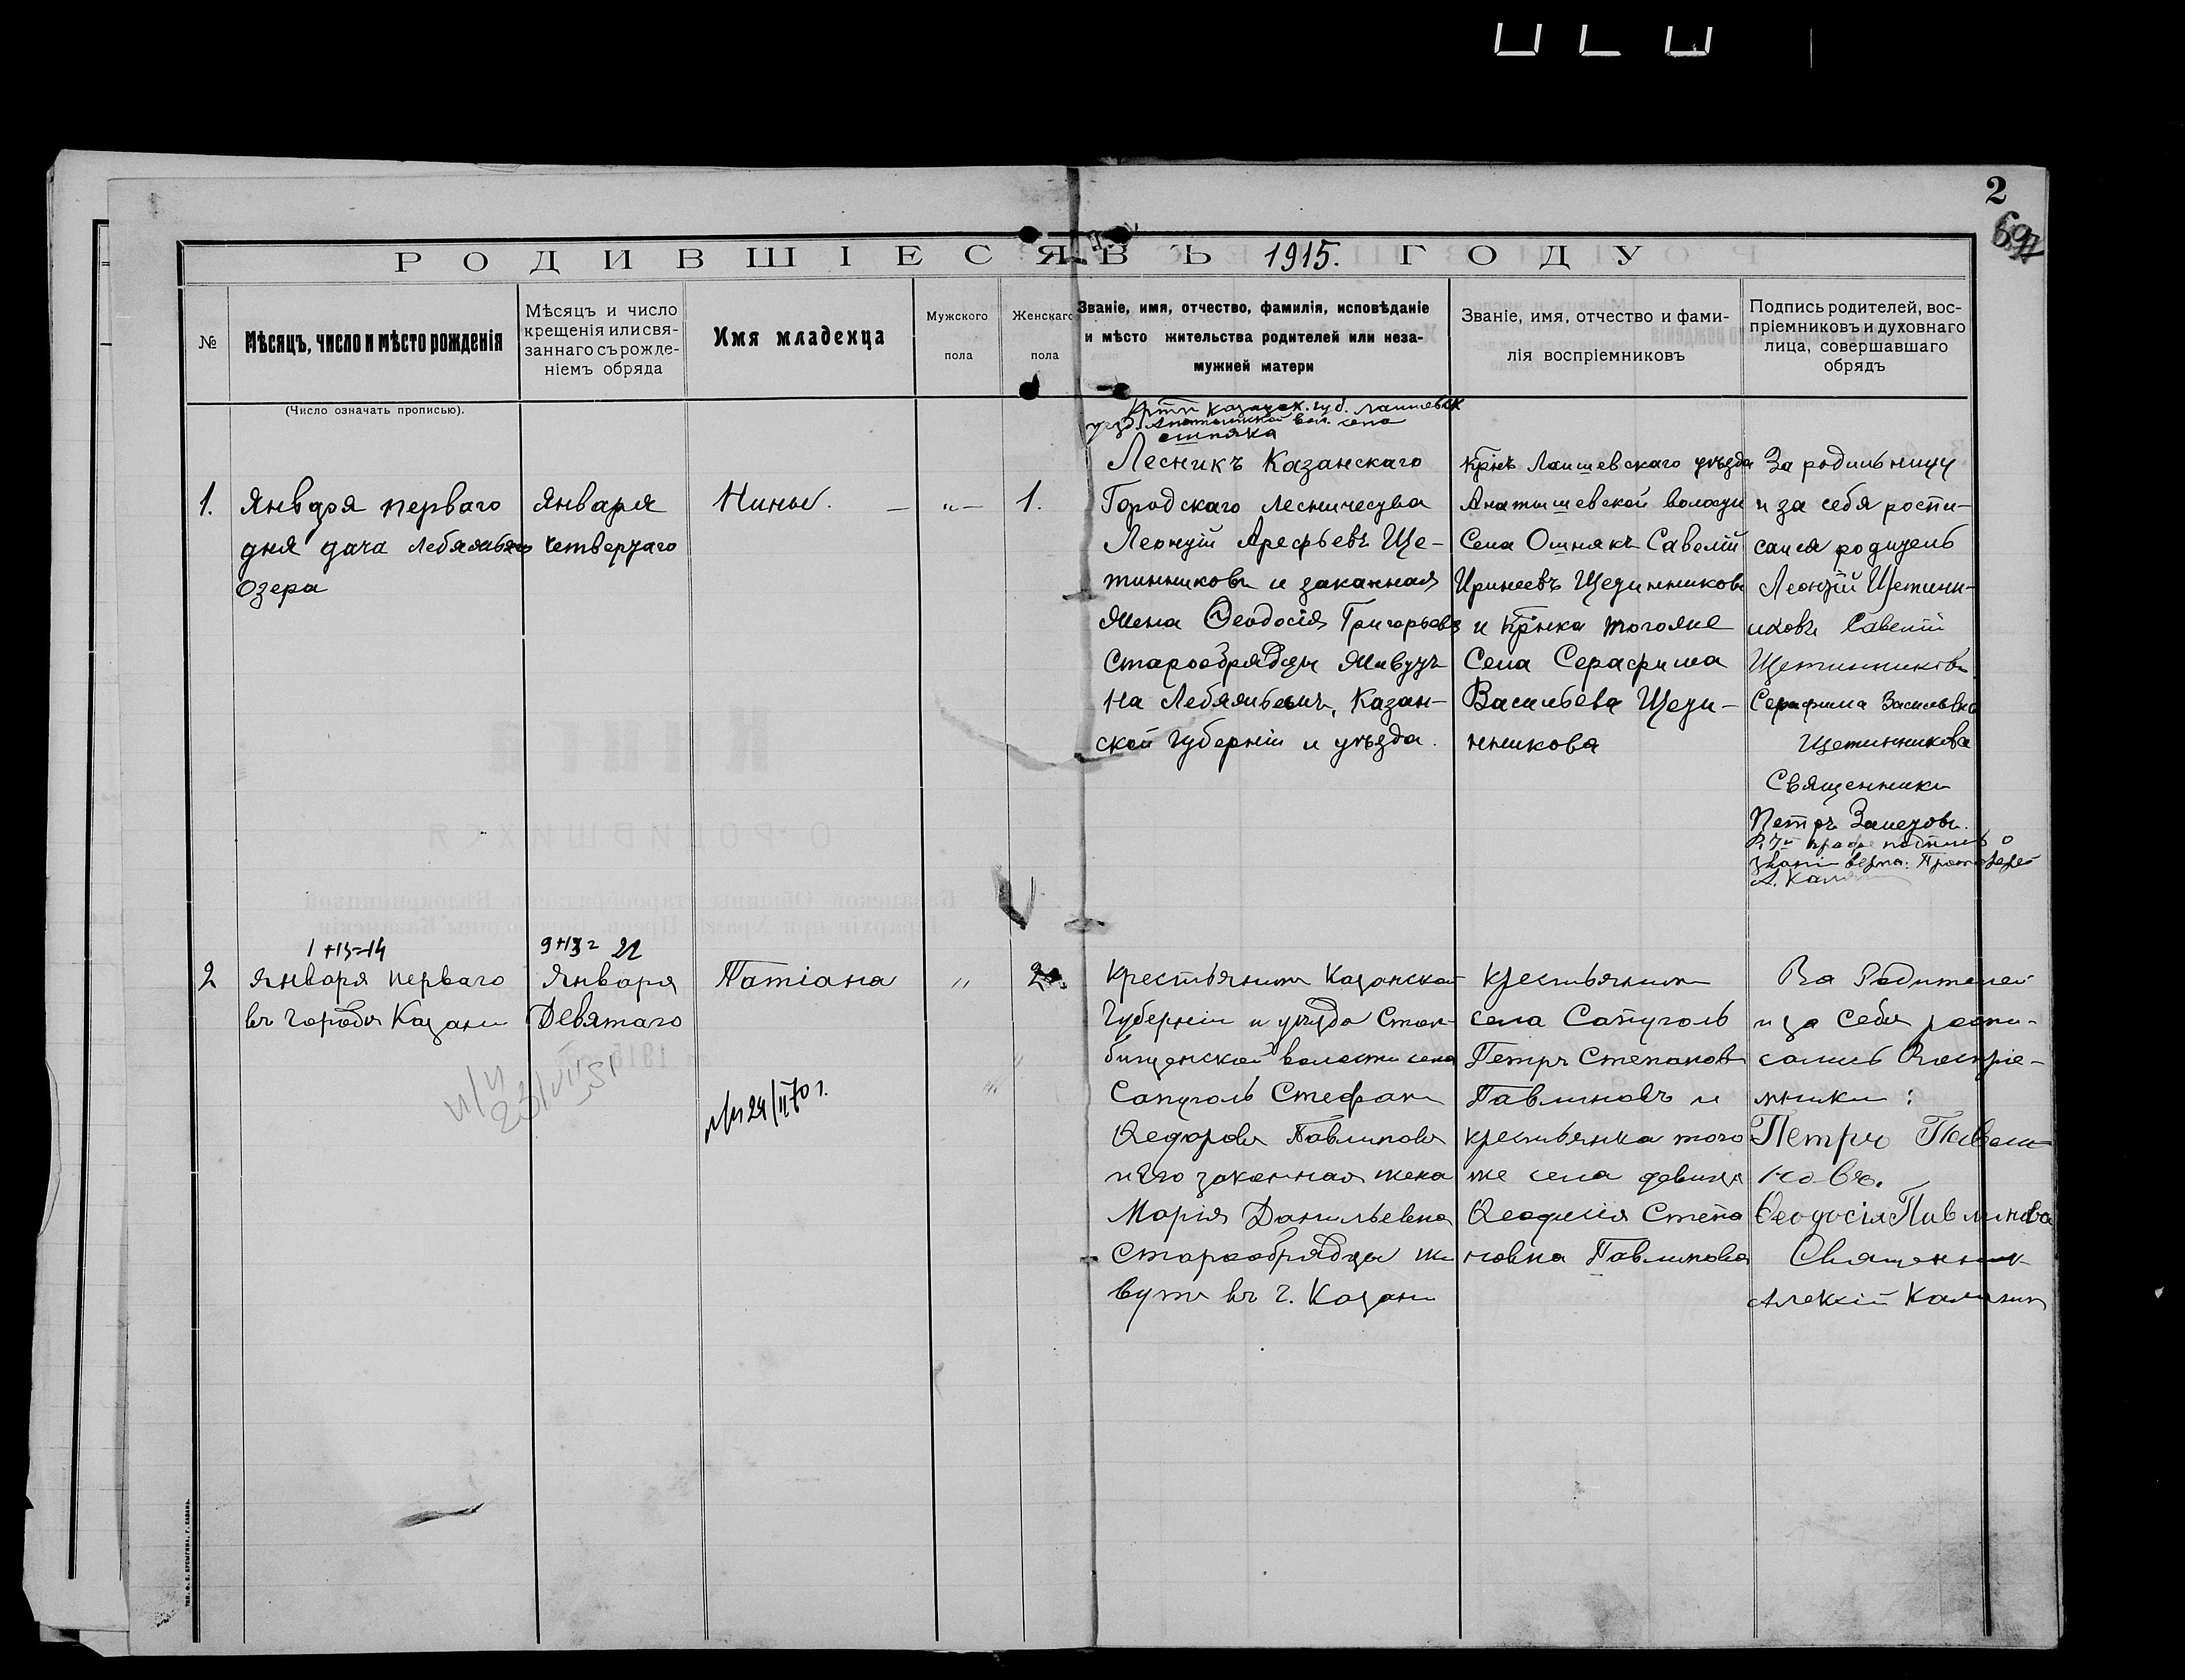 2
РОДИВШІЕСЯ ВЪ 1915. ГОДУ
№
Мѣсяцъ, число и мѣсто рожденія
Мѣсяцъ и число
крещенія или свя-
заннаго съ рожде-
ніемъ обряда
Имя младенца
Мужского
пола
Женскаго
пола
Званіе, имя, отчество, фамилія, исповѣданіе
и мѣсто жительства родителей или неза-
мужней матери
Званіе, имя, отчество и фами-
лія воспріемниковъ
Подпись родителей, вос-
пріемниковъ и духовнаго
лица, совершавшаго
обрядъ
(Число означать прописью).
1.
Января перваго
дня дача Лебяжьяго
Озера
Января
четвертаго
Нины.
— „ —
1.
Казанск. губ. Лаишевск
уезд. вол. села
ошняка
Лесникъ Казанскаго
Городскаго лесничества
Леонтій Арефьевъ Ще-
тинниковъ и законная
жена Ѳеодосія Григорьева
Старообрядцы живутъ
на Лебяжьемъ, Казан-
ской губерніи и уѣзда.
Крнъ Лаишевскаго уѣзда
Анатышевской волости
Села Ошнякъ Савелій
Иринеевъ Щетинниковъ
и Крнка тогоже
Села Серафима
Васильева Щети-
нникова
За родильницу
и за себя роспи-
сался родитель
Леонтій Щетинн-
иковъ Савелій
Щетинниковъ
Серафима Васильевна
Щетинникова
Священникъ
Петръ Залетовъ.
графе подпись о
званіи верна: Протоіерей
А. Кал
1+13=14
9+13= 22
2
Января перваго
въ городѣ Казани
Января
Девятаго
Татіана
„
2
и/п
23/VII 51
24/II 70 г.
Крестьянинъ Казанской
Губерніи и уѣзда Стол-
бищенской волости села
Сапуголь Стефанъ
Ѳедоровъ Павлиновъ
и его законная жена
Марія Данильевна
Старообрядцы жи
вутъ въ г. Казани
Крестьянинъ
села Сапуголь
Петръ Степановъ
Павлиновъ и
крестьянка того
же села девица
Ѳеодосія Степа
новна Павлинова
За Родителей
и за себя роспи-
сались Воспріе-
мники:
Петръ Павли-
новъ.
Ѳеодосія Павлинова
Священникъ
Алексій Калягинъ